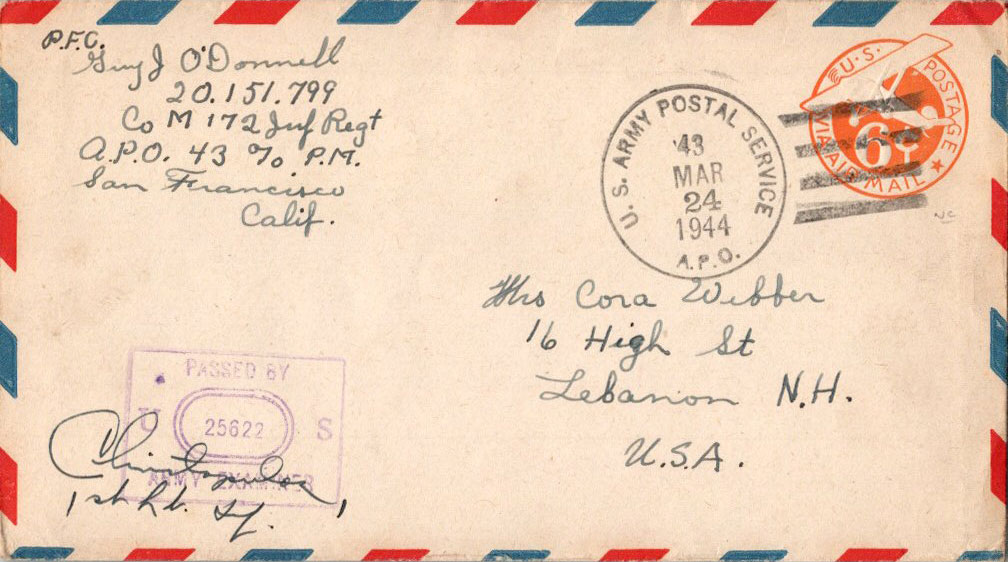 P.F.C.
Guy J O'Donnell
20.151.799
Co M 172 Inf Regt
A.P.O. 43 % P.M.
San Francisco
Calif.
U. S. ARMY POSTAL SERVICE
'43
MAR
24
1944
A.P.O.
U.S. POSTAGE
6¢
VIA AIR MAIL
NC
Mrs Cora Webber
16 High St
Lebanon N.H.
U.S.A.
PASSED BY
U 25622 S
ARMY EXAMINER
1st Lt. Inf.